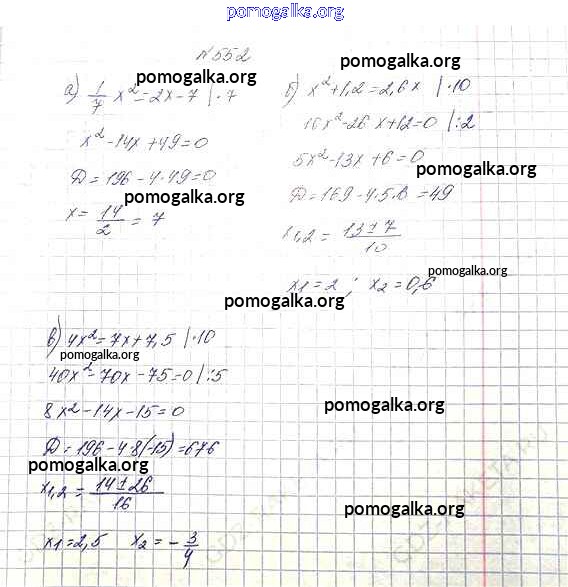 pomogalka.org
№552
pomogalka.org
pomogalka.org
а) 1/7 x² = 2x - 7 | · 7
x² - 14x + 49 = 0
Д = 196 - 4 · 49 = 0
pomogalka.org
x = 14/2 = 7
б) x² + 1,2 = 2,6x | · 10
pomogalka.org
10x² - 26x + 12 = 0 | : 2
5x² - 13x + 6 = 0
pomogalka.org
Д = 169 - 4 · 5 · 6 = 49
pomogalka.org
x1,2 = 13 ± 7 / 10
pomogalka.org
x1 = 2; x2 = 0,6
pomogalka.org
в) 4x² = 7x + 7,5 | · 10
pomogalka.org
40x² - 70x - 75 = 0 | : 5
8x² - 14x - 15 = 0
pomogalka.org
Д = 196 - 4 · 8(-15) = 676
pomogalka.org
x1,2 = 14 ± 26 / 16
pomogalka.org
x1 = 2,5 x2 = - 3/4